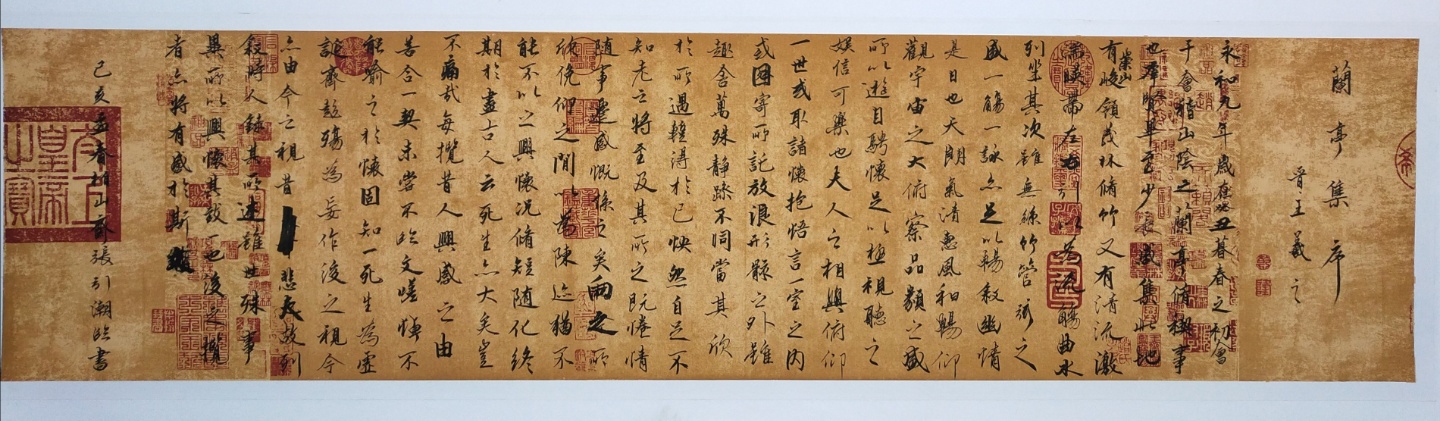 蘭亭集序
晋王羲之
永和九年歲在癸丑暮春之初會
于會稽山陰之蘭亭脩禊事
也群賢畢至少長咸集此地
有崇山峻領茂林脩竹又有清流激
湍暎帶左右引以為流觴曲水
列坐其次雖無絲竹管弦之
盛一觴一詠亦足以暢叙幽情
是日也天朗氣清惠風和暢仰
觀宇宙之大俯察品類之盛
所以遊目騁懷足以極視聽之
娛信可樂也夫人之相與俯仰
一世或取諸懷抱悟言一室之內
或因寄所託放浪形骸之外雖
趣舍萬殊靜躁不同當其欣
於所遇蹔得於己怏然自足不
知老之將至及其所之既惓情
隨事遷感慨係之矣向之所
欣俛仰之閒以為陳迹猶不
能不以之興懷況脩短隨化終
期於盡古人云死生亦大矣豈
不痛哉每攬昔人興感之由
若合一契未嘗不臨文嗟悼不
能喻之於懷固知一死生為虛
誕齊彭殤為妄作後之視今
亦由今之視昔悲夫故列
叙時人錄其所述雖世殊事
異所以興懷其致一也後之攬
者亦將有感於斯文
己亥孟春相山張引潮臨書
太上皇帝之寶